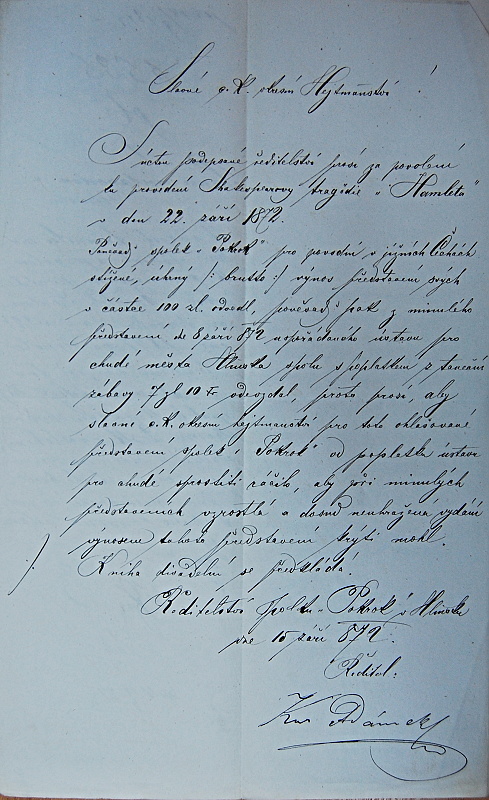 Slavné c. k. okresní Hejtmanství!
S úctou podepsané ředitelství prosí za povolení
ku provedení Shakespearovy tragédie „Hamleta"
v den 22. září 1872.
Poněvadž spolek „Pokrok" pro povodní v jižních Čechách
stižené, úhrný /: brutto :/ výnos představení svých
v částce 100 zl. odvedl, poněvadž pak z minulého
představení dne 8 září 872 uspořádaného ústavu pro
chudé města Hlinska spolu s poplatkem z taneční
zábavy 7 zl 10 kr odevzdal, protož prosí, aby
slavné c. k. okresní hejtmanství pro toto ohlašované
představení spolek „Pokrok" od poplatku ústavu
pro chudé sprostiti ráčilo, aby při minulých
představeních vzrostlá a dosud neuhražená vydání
výnosem tohoto představení krýti mohl.
Kniha divadelní se předkládá.
Ředitelství spolku „Pokrok" v Hlinsku
dne 15 září 872.
Ředitel:
Kar Adámek